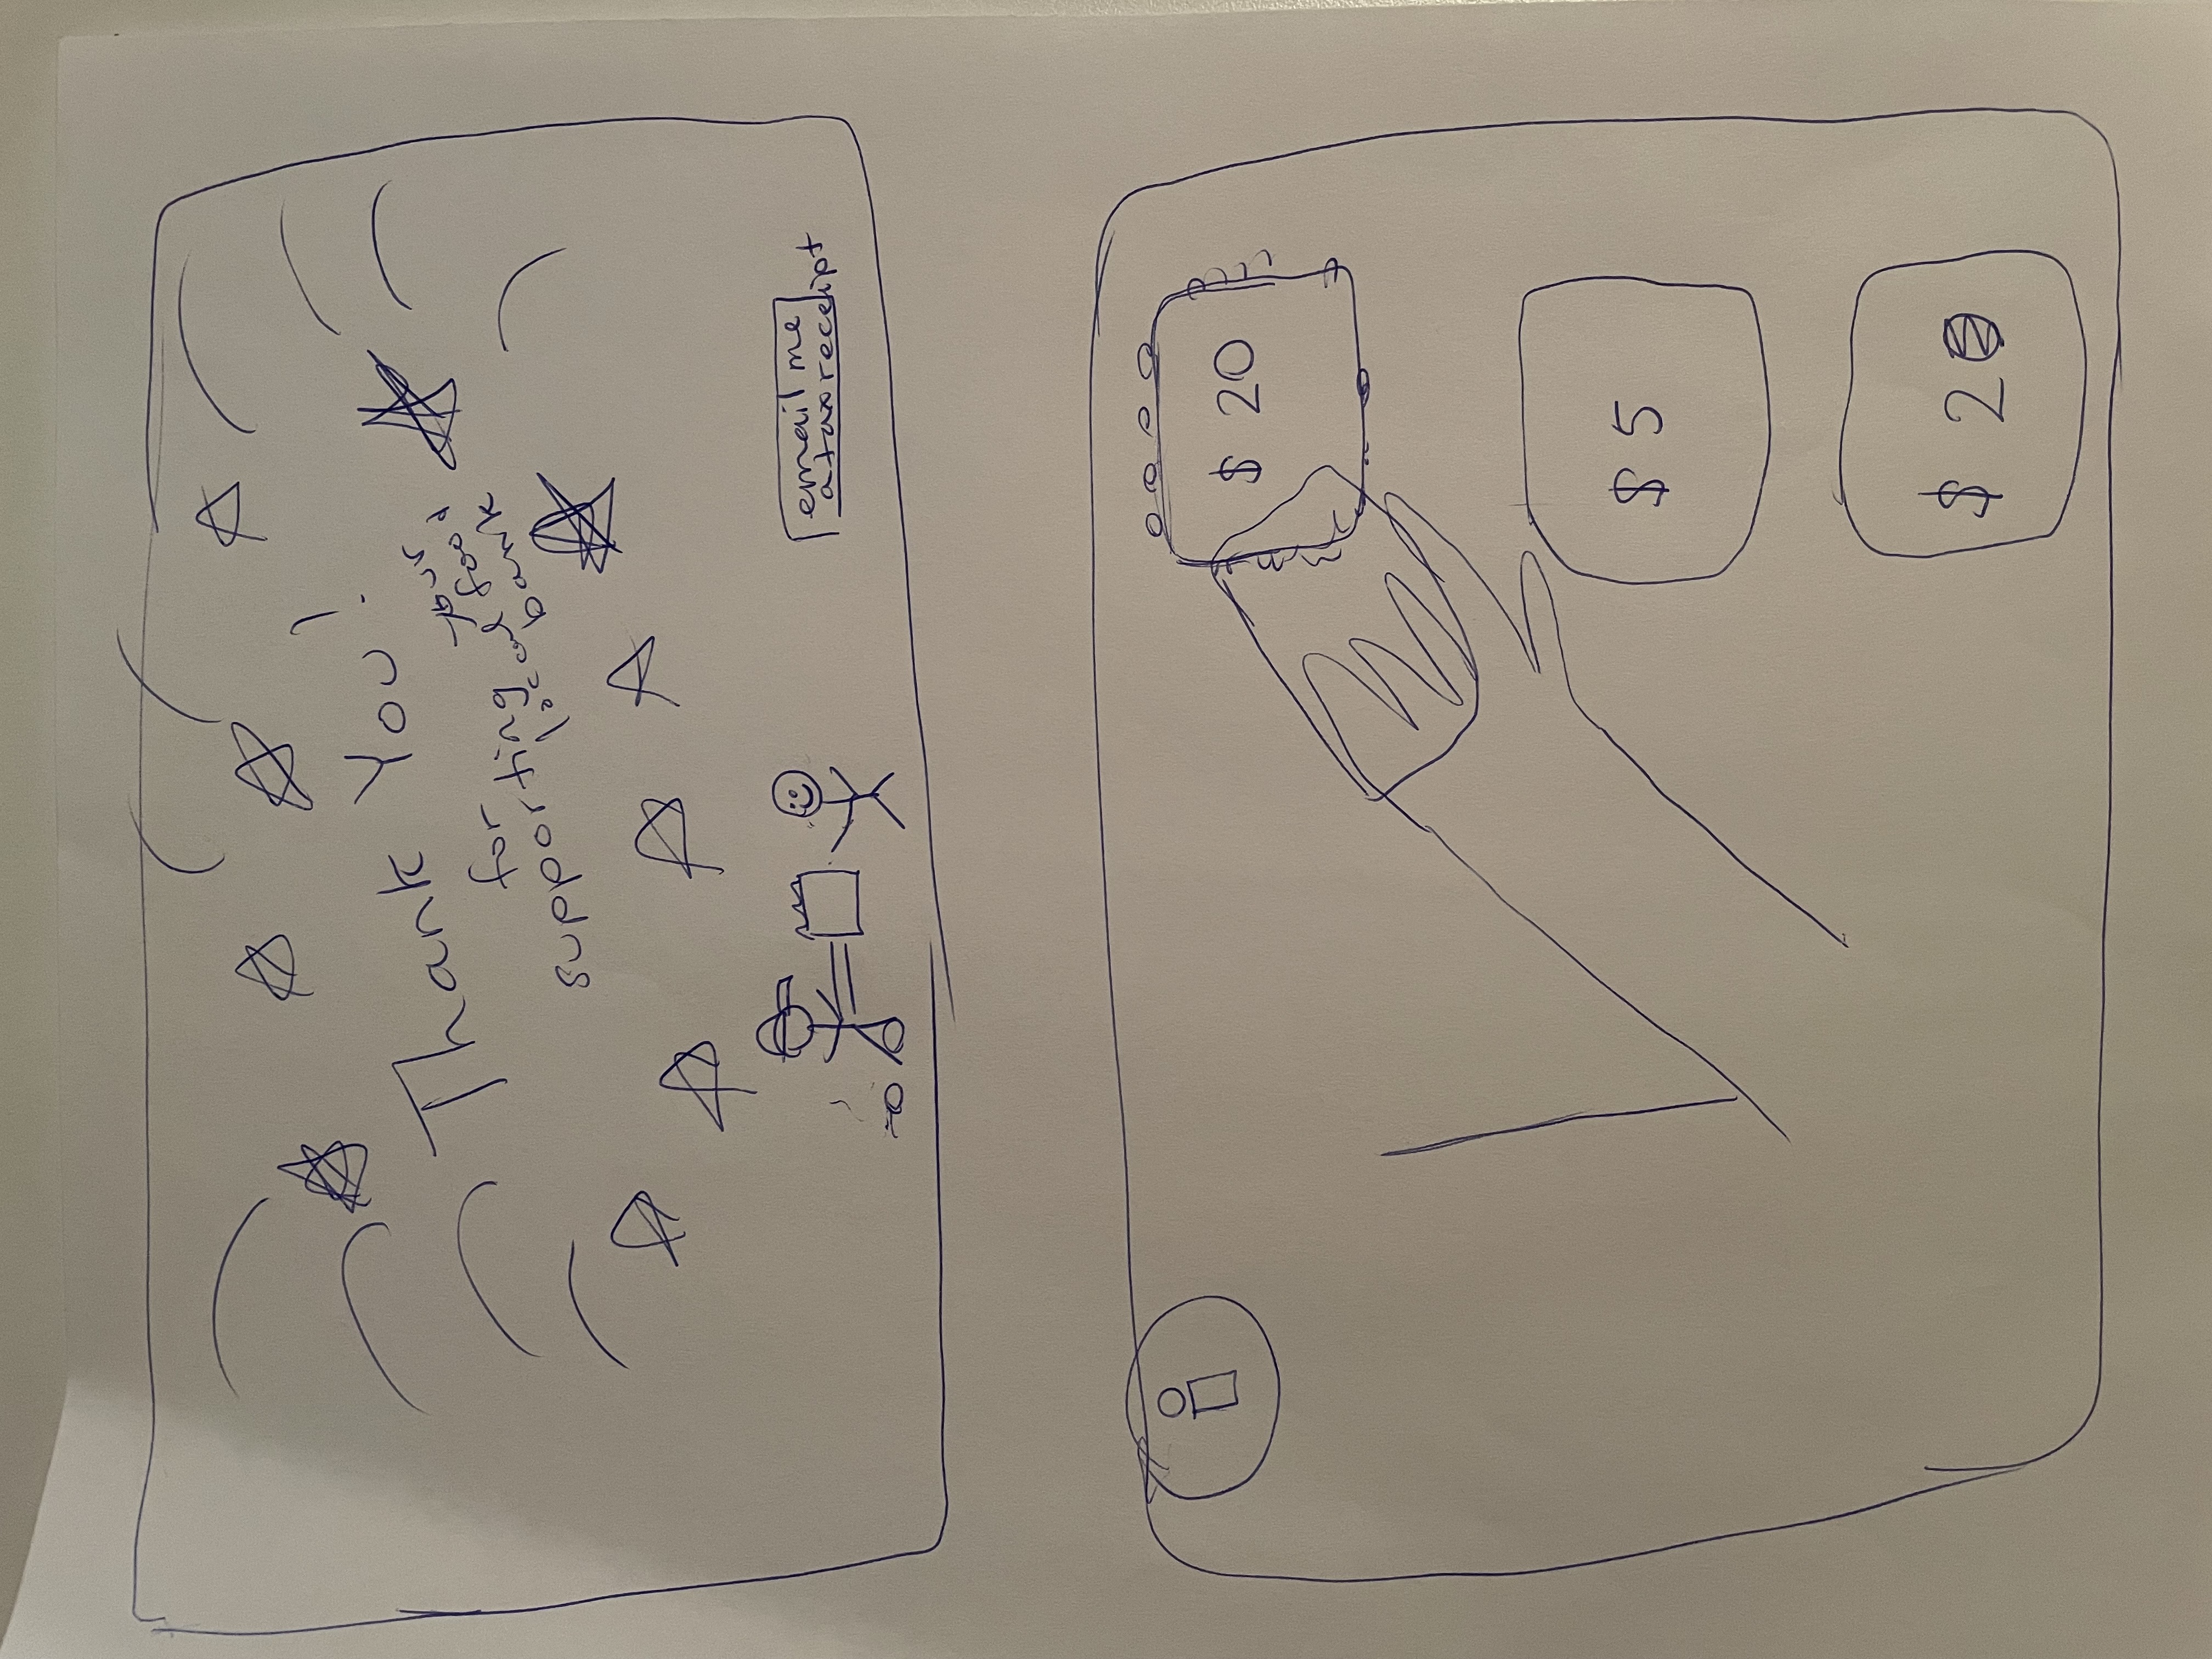 Thank You!
for
supporting your
local food
bank
email me
a tax receipt
i
$ 20
$ 5
$ 2